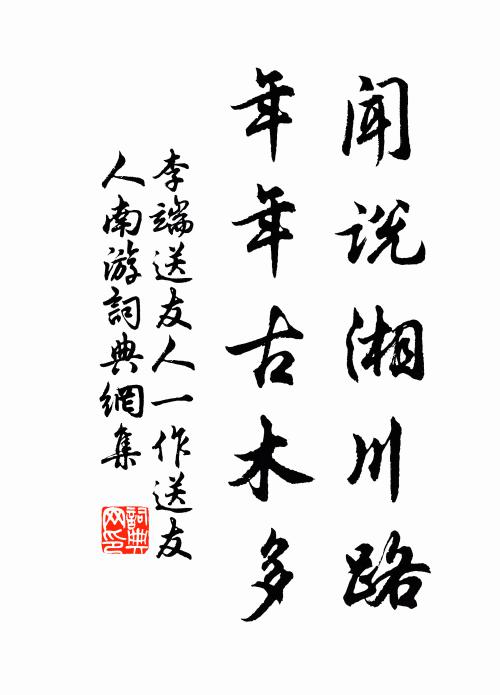 聞说湘川路
年年古木多
李端送友人一作送友
人南游詞典網集
詞典网印